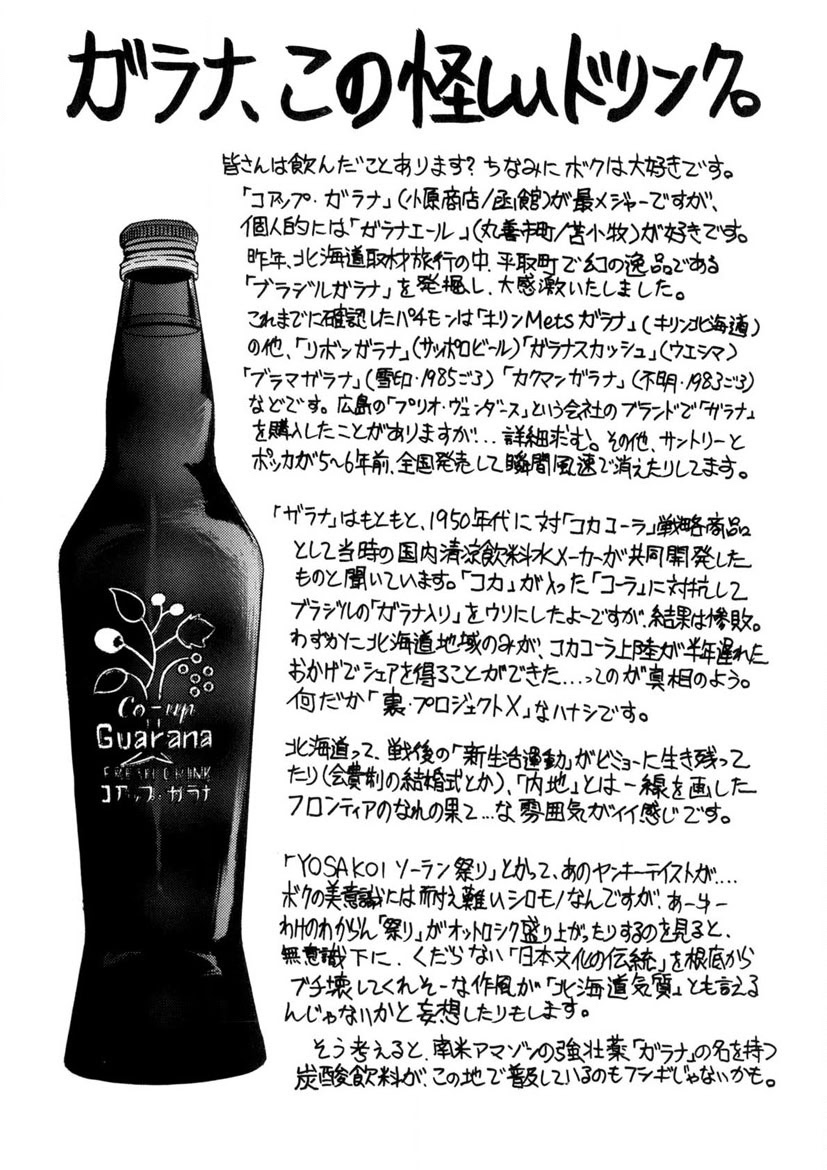 ガラナ、この怪しいドリンク。
皆さんは飲んだことあります？ちなみにボクは大好きです。
「コアップ・ガラナ」（小原商店/函館）が最メジャーですが、
個人的には「ガラナエール」（丸善市町/苫小牧）が好きです。
昨年、北海道取材旅行の中、平取町で幻の逸品である
「ブラジルガラナ」を発掘し、大感激いたしました。
これまでに確認したパチモンは「キリンMetsガラナ」（キリン北海道）
の他、「リボンガラナ」（サッポロビール）「ガラナスカッシュ」（ウエシマ）
「ブラマガラナ」（雪印・1985ごろ）「カクマンガラナ」（不明・1983ごろ）
などです。広島の「プリオ・ヴェンダース」という会社のブランドで「ガラナ」
を購入したことがありますが…詳細求む。その他、サントリーと
ポッカが5〜6年前、全国発売して瞬間風速で消えたりしてます。
「ガラナ」はもともと、1950年代に対「コカコーラ」戦略商品
として当時の国内清涼飲料水メーカーが共同開発した
ものと聞いています。「コカ」が入った「コーラ」に対抗して
ブラジルの「ガラナ入り」をウリにしたよーですが、結果は惨敗。
わずかに北海道地域のみが、コカコーラ上陸が半年遅れた
おかげでシェアを得ることができた…ってのが真相のよう。
何だか「裏・プロジェクトX」なハナシです。
北海道って、戦後の「新生活運動」がビミョーに生き残って
たり（会費制の結婚式とか）、「内地」とは一線を画した
フロンティアのなれの果て…な雰囲気がイイ感じです。
「YOSAKOIソーラン祭り」とかって、あのヤンキーテイストが‥‥
ボクの美意識には耐え難いシロモノなんですが、あーゆー
わけのわからん「祭り」がオットロシク盛り上がったりするのを見ると、
無意識下に、くだらない「日本文化の伝統」を根底から
ブチ壊してくれそーな作風が「北海道気質」とも言える
んじゃないかと妄想したりもします。
そう考えると、南米アマゾンの強壮薬「ガラナ」の名を持つ
炭酸飲料が、この地で普及しているのもフシギじゃないかも。
Co-up
Guarana
コアップ・ガラナ